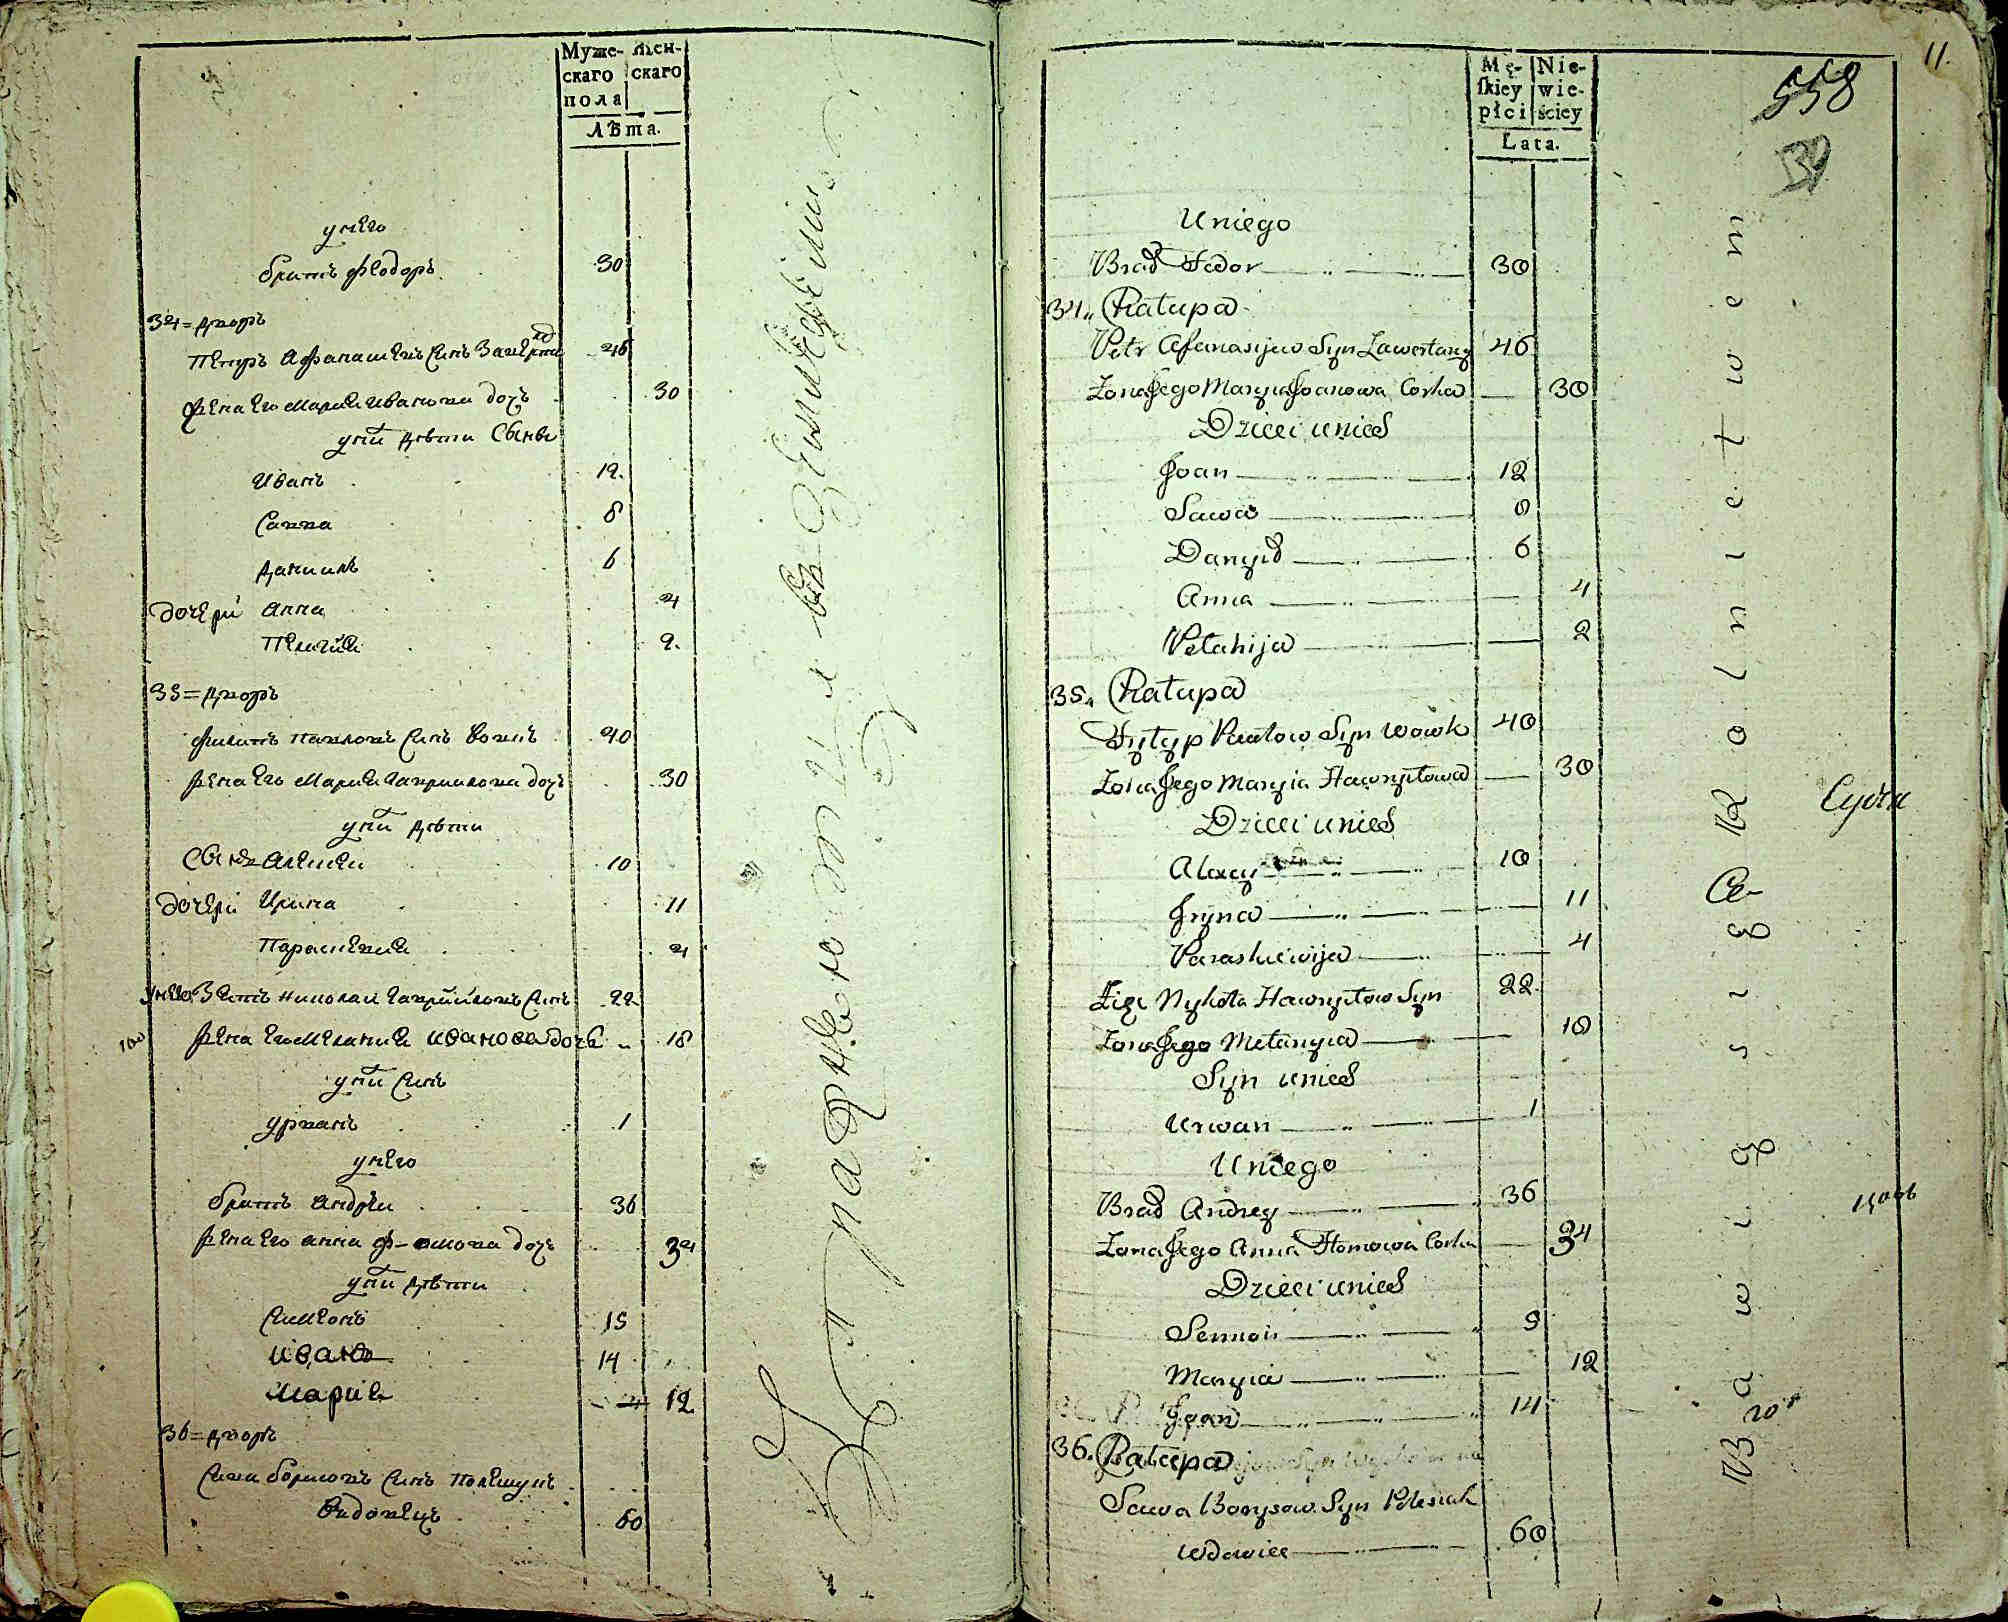 Муже-
скаго
пола
жен-
скаго
Лѣта.
у него
братъ Феодоръ 30
34 = дворъ
Петръ Афанасиевъ синъ 46
жена его Мария Иванова доч 30
у них дѣти Сынъ
Иванъ 12.
Савва 8
Даниилъ 6
дочери Анна 4
Пелагия 2.
35 = дворъ
Филипъ Павловъ синъ Вовкъ 40
жена его Мария Гавриилова доч 30
у них дѣти
Сынъ Алексей 10
дочери Ирина 11
Параскевия 4
у него Зять Николай Гавриловъ синъ 22
жена его Мелания Иванова дочь 18
у них синъ
Урванъ 1
у него
братъ Андрей 36
жена его Анна Ф-омова доч 34
у них дѣти
Симеонъ 15
Иванъ 14
Мария 12
36 = дворъ
Сава Борисовъ синъ Полещукъ
вдовецъ 60
упражняются въ Земледѣлии
11.
558
39
Mę-
skiey
płci
Nie-
wie-
ściey
Lata.
Uniego
Brad Fedor 30
34. Chałupa
Petr Afanasijew Syn Zawertany 46
Zona Jego Maryia Joanowa Corka 30
Dzieci unich
Joan 12
Sawa 8
Danyił 6
Anna 4
Pełahija 2
35. Chałupa
Fyłyp Pawłow Syn Wowk 40
Zona Jego Maryia Hawryłowa 30
Dzieci unich
Alexy 10
Iryna 11
Paraskiewija 4
Zięć Mykoła Hawryłow Syn 22.
Zona Jego Mełanyia 18
Syn unich
Urwan 1
Uniego
Brad Andrey 36
Zona Jego Anna Homowa Corka 34
Dzieci unich
Semion 5
Maryia 12
Joan 14
36. Chałupa
Sawa Borysow Syn Polesiuk
wdowiec 60
Bawią się Rolnictwem